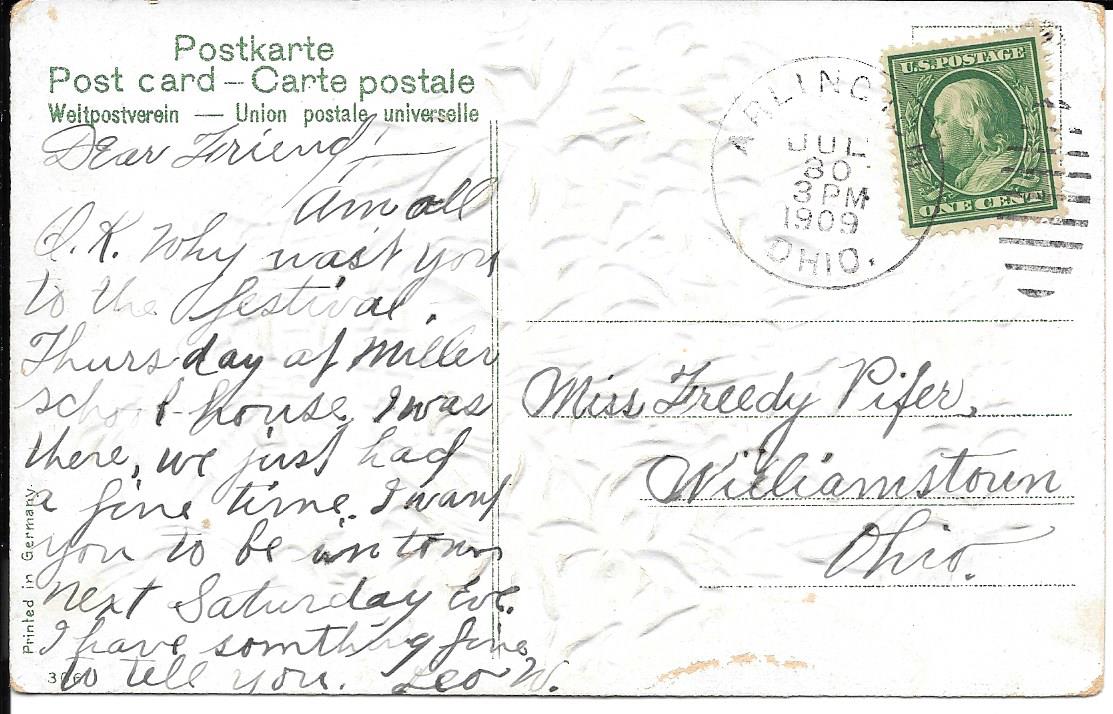 Postkarte
Post card – Carte postale
Weltpostverein — Union postale universelle
Dear Friend! —
Am all
O.K. Why wast you
to the festival.
Thursday at Miller
school-house. I was
there, we just had
a fine time. I want
you to be in town
next Saturday Eve.
I have somthing fine
to tell you. Leo W.
Printed in Germany.
U.S. POSTAGE
ONE CENT
JUL
30
3 PM
1909
OHIO.
Miss Freedy Pifer,
Williamstown
Ohio.